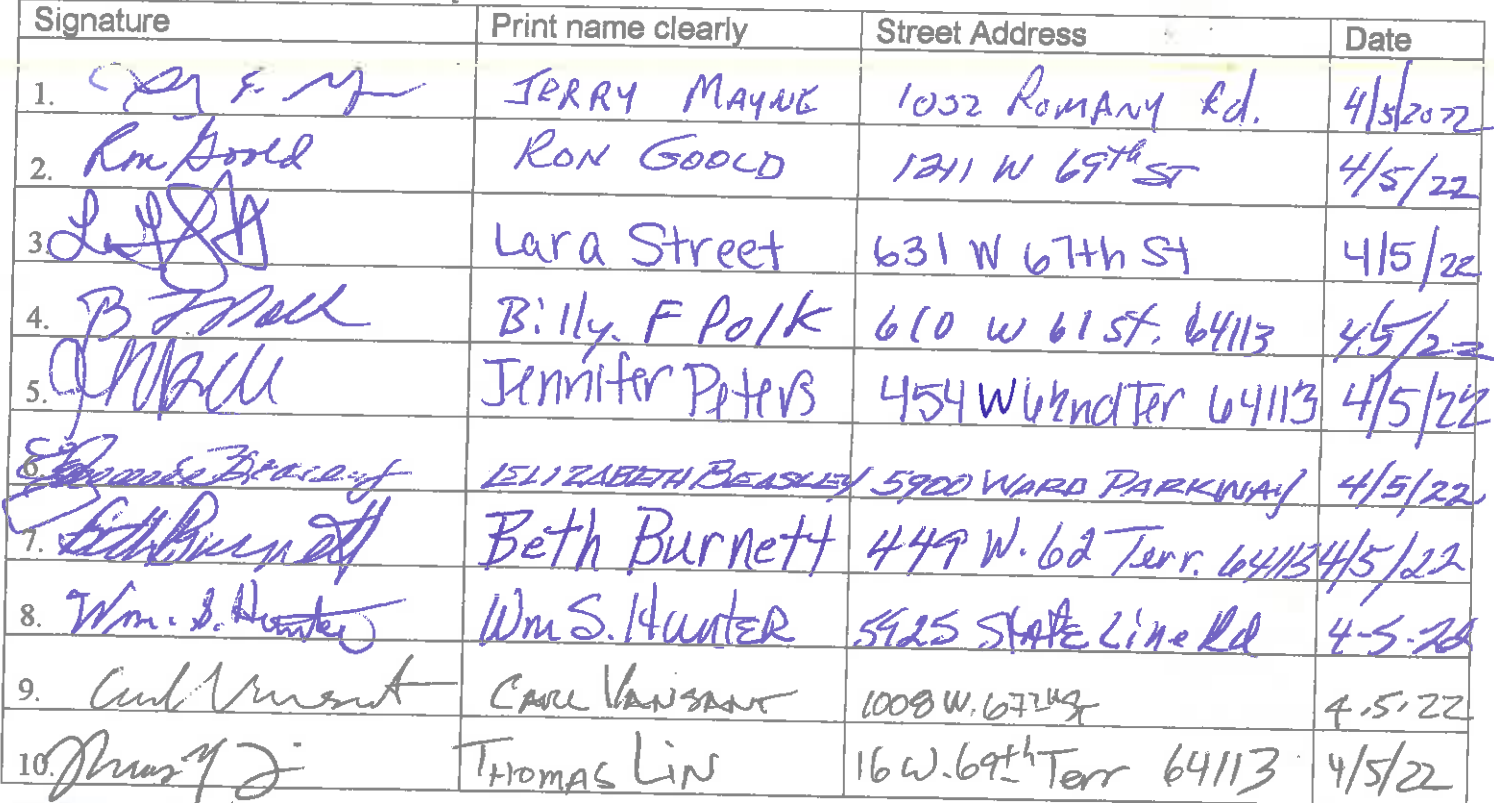 Signature Print name clearly Street Address Date
1. JERRY MAYNE 1032 ROMANY Rd. 4/5/2022
2. Ron Goold RON GOOLD 1211 W 69th ST 4/5/22
3. Lara Street 631 W 67th St 4/5/22
4. B F Polk Billy. F Polk 610 W 61 st. 64113 4/5/22
5. Jennifer Peters 454 W 62nd Ter 64113 4/5/22
6. ELIZABETH BEASLEY 5900 WARD PARKWAY 4/5/22
7. Beth Burnett Beth Burnett 449 W. 62 Terr. 64113 4/5/22
8. Wm. S. Hunter Wm S. HUNTER 5925 STATE Line Rd 4-5-22
9. Carl Vansant CARL VANSANT 1008 W. 67 St 4.5.22
10. THOMAS LIN 16 W. 69th Terr 64113 4/5/22